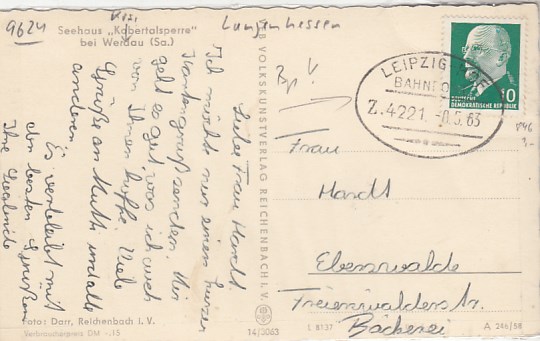 9624
Langenhessen
Seehaus „Kobertalsperre"
bei Werdau (Sa.)
Liebe Frau Hardt.
Ich möchte nur einen kurzen
Kartengruß senden. Mir
geht es gut was ich auch
von Ihnen hoffe. Viele
Grüße an Ruth und alle
anderen.
Es verbleibt mit
den besten Grüßen
Ihre
VEB VOLKSKUNSTVERLAG REICHENBACH I. V.
LEIPZIG
BAHNPO
Z.4221 -8.5.63
10
DEUTSCHE
DEMOKRATISCHE REPUBLIK
Frau
Hardt
Eberswalde
Freienwalderstr.
Bäckerei
Foto: Darr, Reichenbach i. V.
Verbraucherpreis DM -.15
14/3063
L 8137
A 246/58